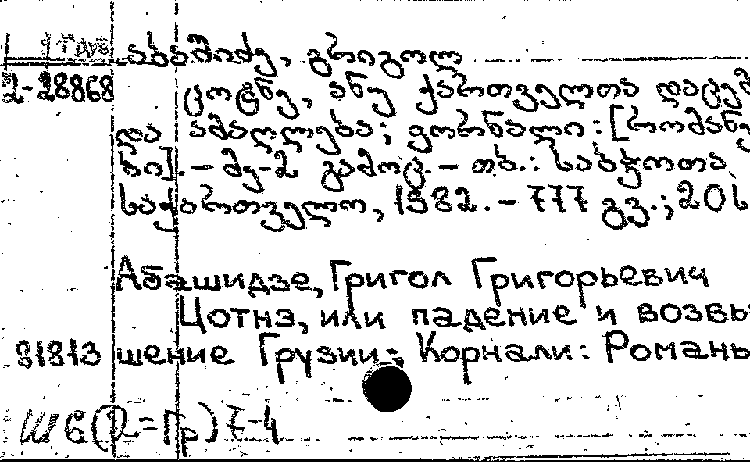 აბაშიძე, გრიგოლ
2-28868 ცოტნე, ანუ ქართველთა დაცემ
და ამაღლება; კორნალი: [რომანე
ბი]. – მე-2 გამოც. – თბ.: საბჭოთა
საქართველო, 1982. – 777 გვ.; 20 ს
Абашидзе, Григол Григорьевич
Цотнэ, или падение и возвы
81813 шение Грузии; Корнали: Романы
Ш6(2=Гр)7-4